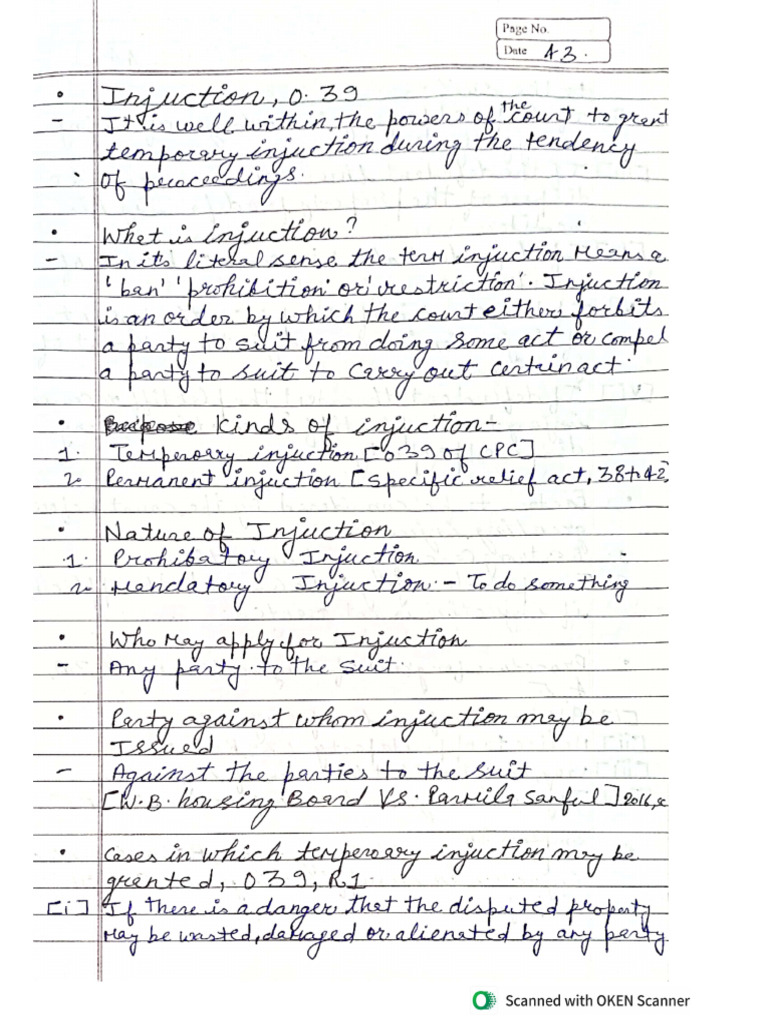 Page No.
Date A3.
• Injuction, O. 39
- It is well within, the powers of the court to grant
temporary injuction during the tendency
of proceedings.
• What is injuction?
- In its literal sense the term injuction means a
'ban' 'prohibition' or 'restriction'. Injuction
is an order by which the court either forbits
a party to suit from doing some act or compel
a party to suit to carry out certain act.
• kinds of injuction-
1. Temperory injuction [O39 of CPC]
2. Permanent injuction [specific relief act, 38+42]
• Nature of Injuction
1. Prohibatory Injuction
2. Mendatory Injuction:- To do something
• Who may apply for Injuction
- Any party to the suit.
• Party against whom injuction may be
Issued
- Against the parties to the suit
[W.B. housing Board VS. Parmila Sanful] 2016,
• cases in which temperoary injuction may be
granted, O39, R1
[i] If there is a danger that the disputed property
may be wasted, damaged or alienated by any party
Scanned with OKEN Scanner